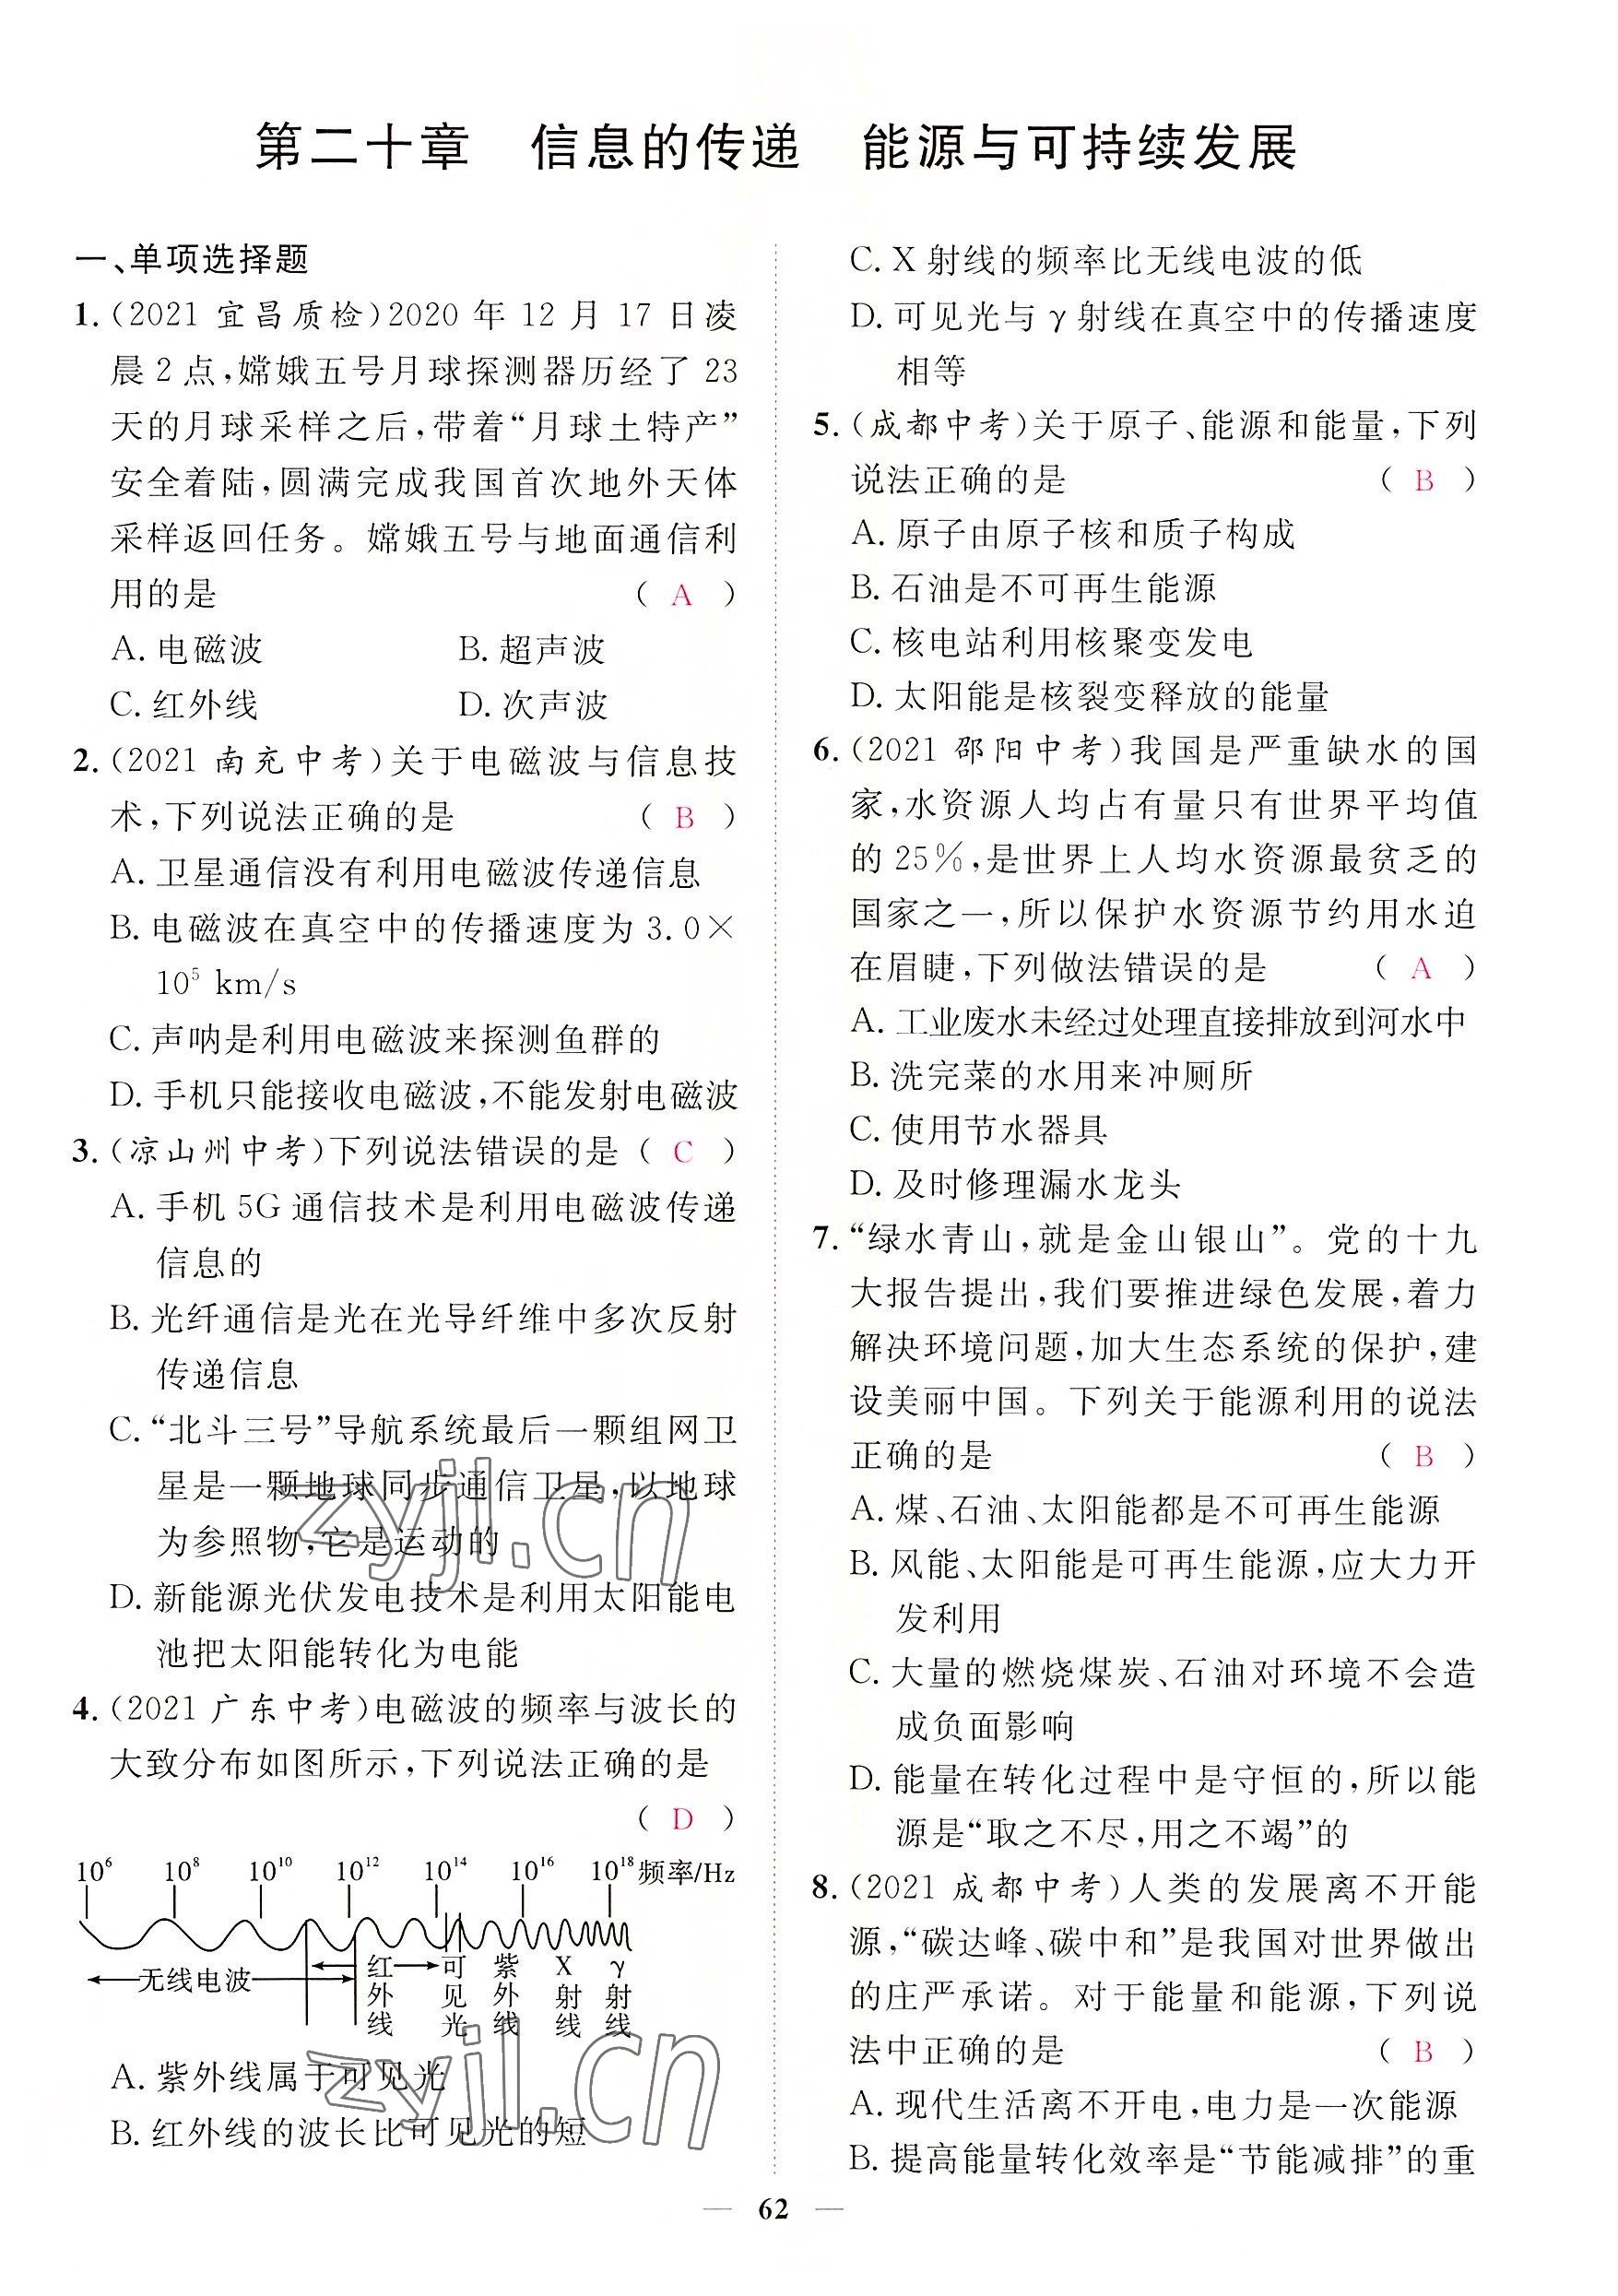 第二十章　信息的传递　能源与可持续发展
一、单项选择题
1.(2021 宜昌质检)2020 年 12 月 17 日凌
晨 2 点,嫦娥五号月球探测器历经了 23
天的月球采样之后,带着“月球土特产”
安全着陆,圆满完成我国首次地外天体
采样返回任务。嫦娥五号与地面通信利
用的是 ( A )
A. 电磁波 B. 超声波
C. 红外线 D. 次声波
2.(2021 南充中考)关于电磁波与信息技
术,下列说法正确的是 ( B )
A. 卫星通信没有利用电磁波传递信息
B. 电磁波在真空中的传播速度为 3.0×
10⁵ km/s
C. 声呐是利用电磁波来探测鱼群的
D. 手机只能接收电磁波,不能发射电磁波
3.(凉山州中考)下列说法错误的是 ( C )
A. 手机 5G 通信技术是利用电磁波传递
信息的
B. 光纤通信是光在光导纤维中多次反射
传递信息
C.“北斗三号”导航系统最后一颗组网卫
星是一颗地球同步通信卫星,以地球
为参照物,它是运动的
D. 新能源光伏发电技术是利用太阳能电
池把太阳能转化为电能
4.(2021 广东中考)电磁波的频率与波长的
大致分布如图所示,下列说法正确的是
( D )
10⁶ 10⁸ 10¹⁰ 10¹² 10¹⁴ 10¹⁶ 10¹⁸ 频率/Hz
无线电波 红外线 可见光 紫外线 X射线 γ射线
A. 紫外线属于可见光
B. 红外线的波长比可见光的短
C. X 射线的频率比无线电波的低
D. 可见光与 γ 射线在真空中的传播速度
相等
5.(成都中考)关于原子、能源和能量,下列
说法正确的是 ( B )
A. 原子由原子核和质子构成
B. 石油是不可再生能源
C. 核电站利用核聚变发电
D. 太阳能是核裂变释放的能量
6.(2021 邵阳中考)我国是严重缺水的国
家,水资源人均占有量只有世界平均值
的 25%,是世界上人均水资源最贫乏的
国家之一,所以保护水资源节约用水迫
在眉睫,下列做法错误的是 ( A )
A. 工业废水未经过处理直接排放到河水中
B. 洗完菜的水用来冲厕所
C. 使用节水器具
D. 及时修理漏水龙头
7.“绿水青山,就是金山银山”。党的十九
大报告提出,我们要推进绿色发展,着力
解决环境问题,加大生态系统的保护,建
设美丽中国。下列关于能源利用的说法
正确的是 ( B )
A. 煤、石油、太阳能都是不可再生能源
B. 风能、太阳能是可再生能源,应大力开
发利用
C. 大量的燃烧煤炭、石油对环境不会造
成负面影响
D. 能量在转化过程中是守恒的,所以能
源是“取之不尽,用之不竭”的
8.(2021 成都中考)人类的发展离不开能
源,“碳达峰、碳中和”是我国对世界做出
的庄严承诺。对于能量和能源,下列说
法中正确的是 ( B )
A. 现代生活离不开电,电力是一次能源
B. 提高能量转化效率是“节能减排”的重
— 62 —
zyjl.cn
zyjl.cn